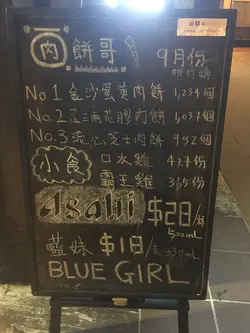 肉餅哥
9月份
No.1 金沙蛋黃肉餅 1,234個
No.2 花膠肉餅 1,037個
No.3 流心芝士肉餅 952個
小食 口水雞 427份
霸王雞 365份
asahi $20/杯
500mL
藍妹 $18/支 330mL
BLUE GIRL